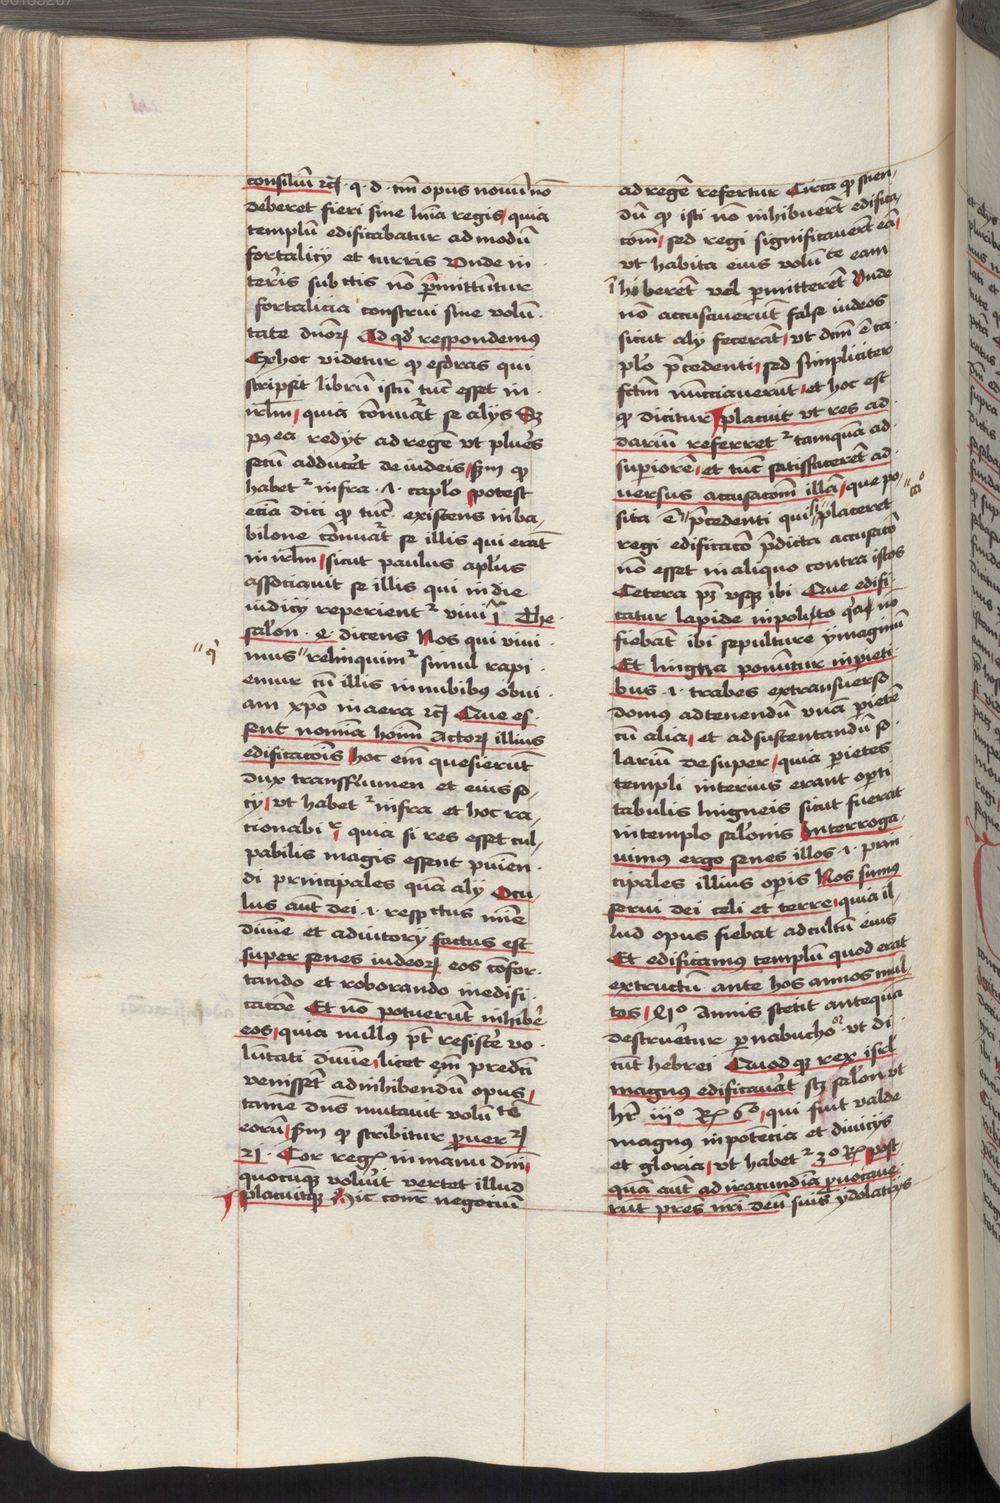 consiliū ⁊c̄ · q · d · tm̄ opus nouū nō
deberet fieri sine lnīa regis quia
templū edificabatur ad modū
fortalicij et turris Onde in
teris sub ctis nō ꝑmittuntur
fortalicia construi sine volū
tate dnoꝝ Ad qd' respondemus
Ex hoc videtur ꝙ esdras qui
scripsit librū istū tūc esset in
irlm̄ quia cōnūat se alijs Sꝫ
pꝯ ea redijt ad regē vt plures
secū adducēt de iudeis sm̄ ꝙ
habet᷑ infra · 7 · caplo potest
eciā dici ꝙ tūc existens in ba
bilone cōnūat se illis qui erāt
in irlm̄ sicut paulus apl'us
associauit se illis qui in die
iudicij reperient᷑ viui 1ª The
salon · 4 · dicens Nos qui viui
mus relinquim᷑ simul rapi
emur cū illis in nubibus obui
am xpō in aera ⁊c̄ Que es
sent nomina hoīm Actoꝝ illius
edificacōis hoc em̄ quesierūt
dux transflumen et eius so
cij vt habet᷑ infra et hoc ra
cionabi r quia si res esset cul
pabilis magis essent puniēn
di principales quā alij Ocu
lus aūt dei · i · respectus mīe
diuīe et adiutorij factus est
super senes iudeoꝝ eos cōfor
tando et roborando in edifi
cacōe Et nō potuerūt inhibē
eos quia nullus pt̄ resistē vo
lūtati diuīe licet em̄ predcī
venissēt ad inhibendū opus
tamē dns̄ mutauit volū tē
eorū sm̄ ꝙ scribitur ꝓuer ꝝ
21 · Cor regꝭ in manu dnī
quocūqꝫ voluīt vertet illud
placuitqꝫ Hic cōnr̄ negociū
ad regē refertur Circa ꝙ scien
dū ꝙ isti nō inhibuerūt edifica
cōm sed regi significauerūt eā
vt habita eius volū te eam
īhiberēt vel ꝑmitterēt Onde
nō accusauerūt false iudeos
sicut alij fecerāt vt dcm̄ ē ca
plo p̄cedenti sed simpliciter
fcm̄ nūciauerūt et hoc est
ꝙ dicitur placuit vt res ad
dariū referret᷑ tamquā ad
superiorē et tūc satisfacerēt ad
uersus accusacōm illā que po
sita ē p̄cedenti qui placeret
regi edificacō p̄dicta accusacō
nō esset in aliquo contra istos
Cetera pꝫ vsqꝫ ibi Que edifi
catur lapide inpolito qꝫ nō
fiebāt ibi sepulture ymaginū
Et lingna ponūtur in pieti
bus · i · trabes extransuerso
domus ad tenendū vnā pietē
cū alia et ad sustentandū so
lariū desuper quia pietes
templi interius erant opti
tabulis lingneis sicut fuerat
in templo salonis Interroga
uimus ergo senes illos · i · prin
cipales illius opis Nos sumus
serui dei celi et terre quia il
lud opus fiebat ad cultū eius
Et edificamus templū quod erat
extructū ante hos annos mul
tos annis stetit antequā
destrueretur p nabuchoº · vt di
cūt hebrei Quod qꝫ rex isrl
magnus edificauat scꝫ salon vt
hr̄ iijº Rꝭ 6º qui fuit valde
magnus in potencia et diuicijs
et gloria vt habet᷑ 3º Rꝭ post
quā aūt ad iracundiā ꝓuocaue
rūt pres nrī deū suis ydolatrijs